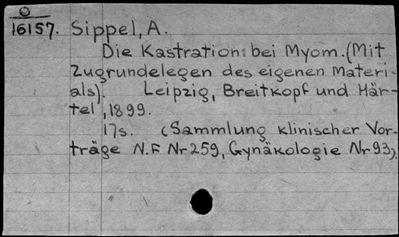 16157. Sippel, A.
Die Kastration bei Myom. (Mit
Zugrundelegen des eigenen Materi-
als). Leipzig, Breitkopf und Här-
tel, 1899.
17s. (Sammlung klinischer Vor-
träge N.F Nr 259, Gynäkologie Nr 93).